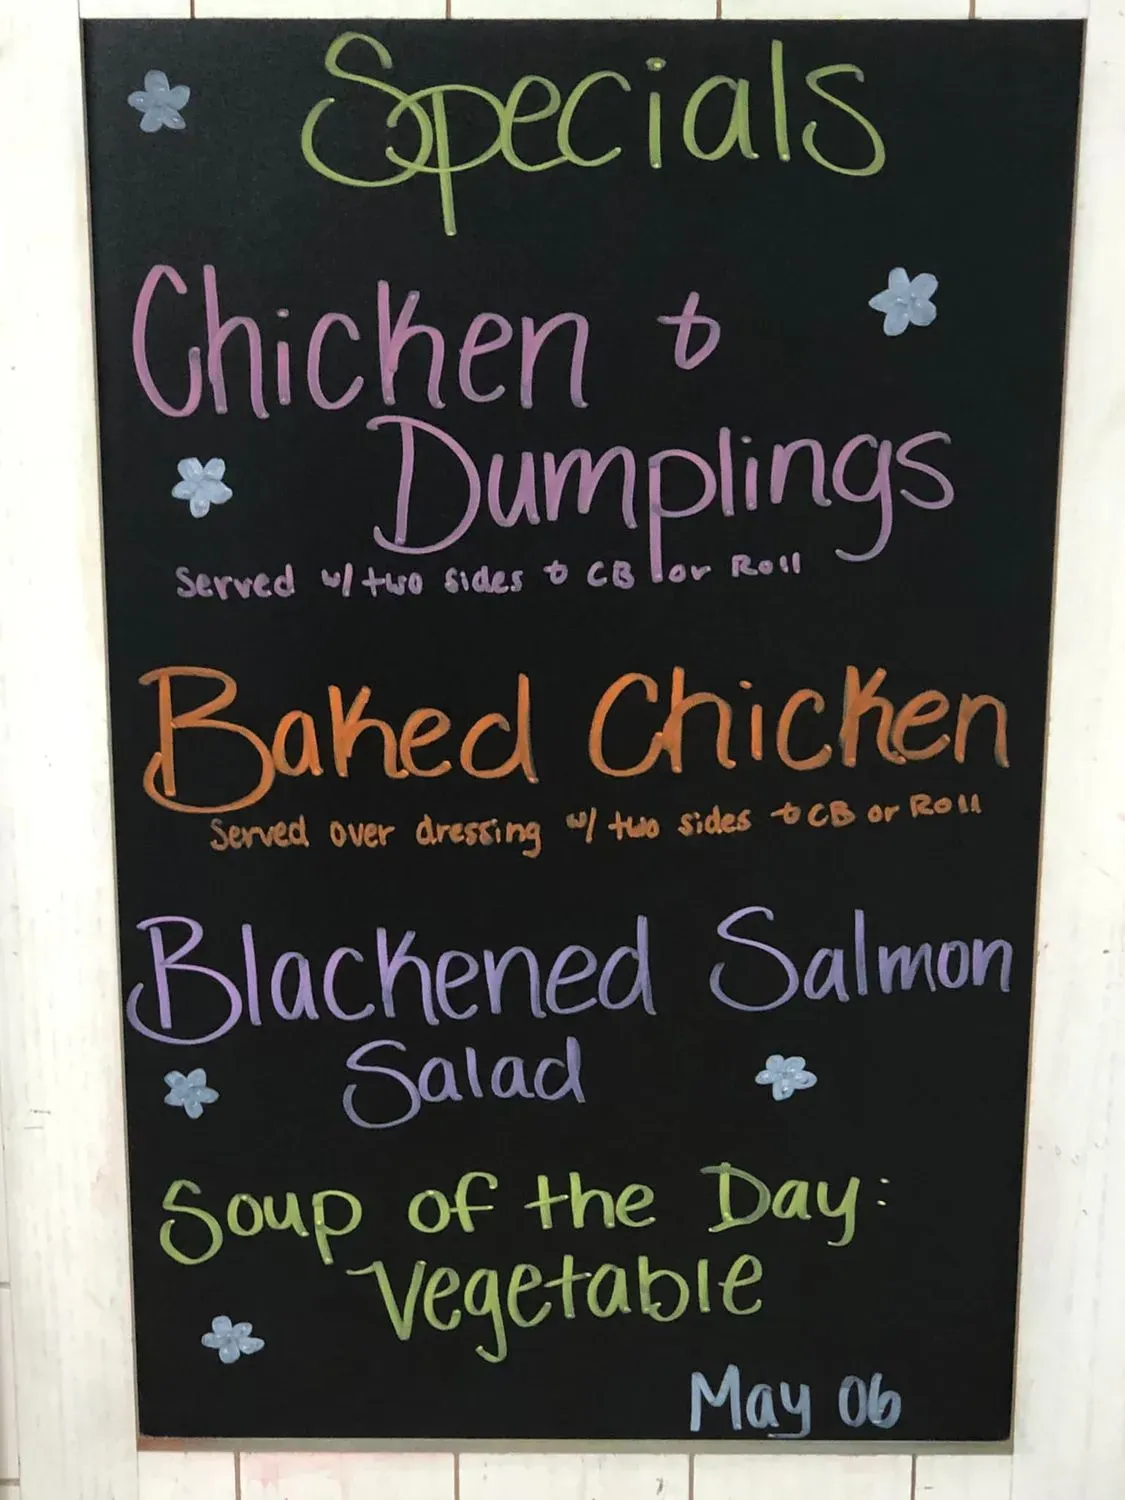 Specials
Chicken &
Dumplings
Served w/ two sides & CB or Roll
Baked Chicken
Served over dressing w/ two sides & CB or Roll
Blackened Salmon
Salad
Soup of the Day:
Vegetable
May 06